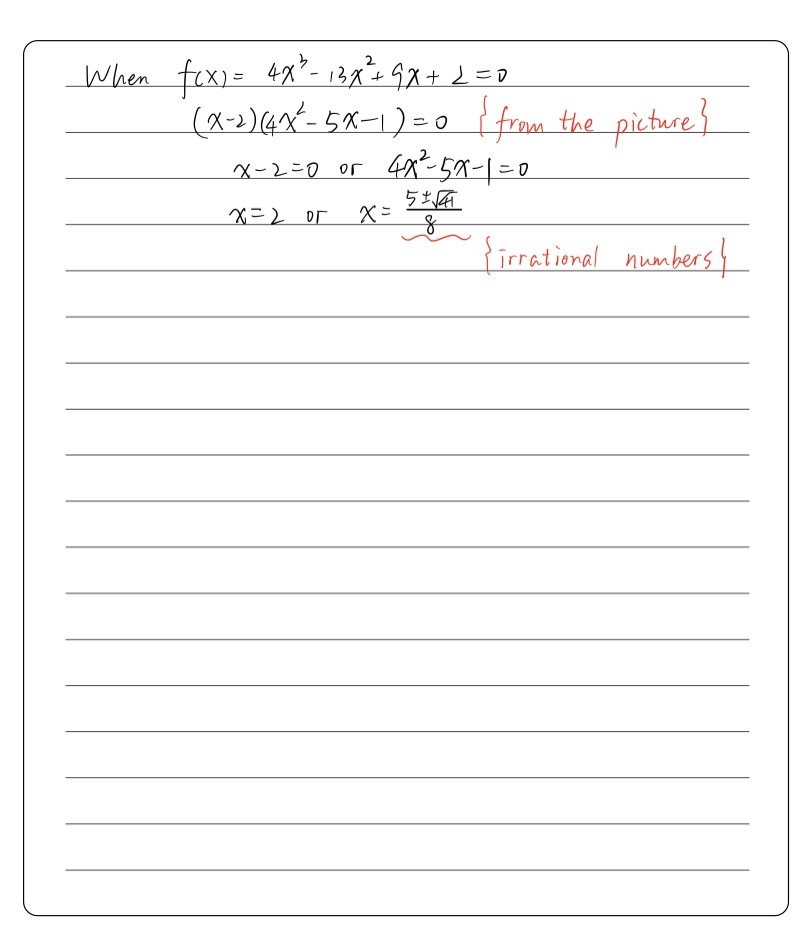 When f(x) = 4x³ - 13x² + 9x + 2 = 0
(x-2)(4x² - 5x - 1) = 0 {from the picture}
x-2=0 or 4x²-5x-1=0
x=2 or x= (5±√41)/8
{irrational numbers}